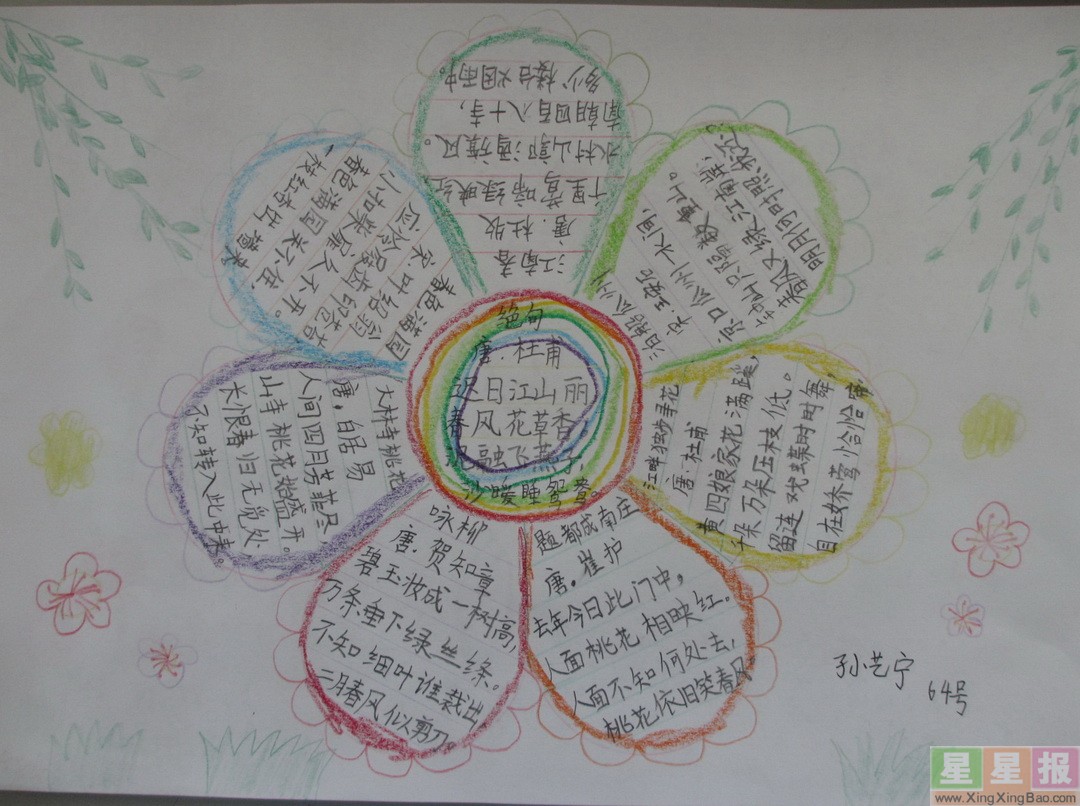 绝句
唐·杜甫
迟日江山丽
春风花草香
泥融飞燕子,
沙暖睡鸳鸯。
江南春
唐·杜牧
千里莺啼绿映红,
水村山郭酒旗风。
南朝四百八十寺,
多少楼台烟雨中。
泊船瓜州
宋·王安石
京口瓜州一水间,
钟山只隔数重山。
春风又绿江南岸,
明月何时照我还。
江畔独步寻花
唐·杜甫
黄四娘家花满蹊,
千朵万朵压枝低。
留连戏蝶时时舞,
自在娇莺恰恰啼。
题都成南庄
唐,崔护
去年今日此门中,
人面桃花相映红。
人面不知何处去,
桃花依旧笑春风
咏柳
唐·贺知章
碧玉妆成一树高,
万条垂下绿丝绦。
不知细叶谁裁出
二月春风似剪刀。
大林寺桃花
唐,白居易
人间四月芳菲尽
山寺桃花始盛开。
长恨春归无觅处
不知转入此中来。
春色满园
宋·叶绍翁
应怜屐齿印苍苔
小扣柴扉久不开。
春色满园关不住
一枝红杏出墙来
孙艺宁
64号
星星报
www.XingXingBao.com